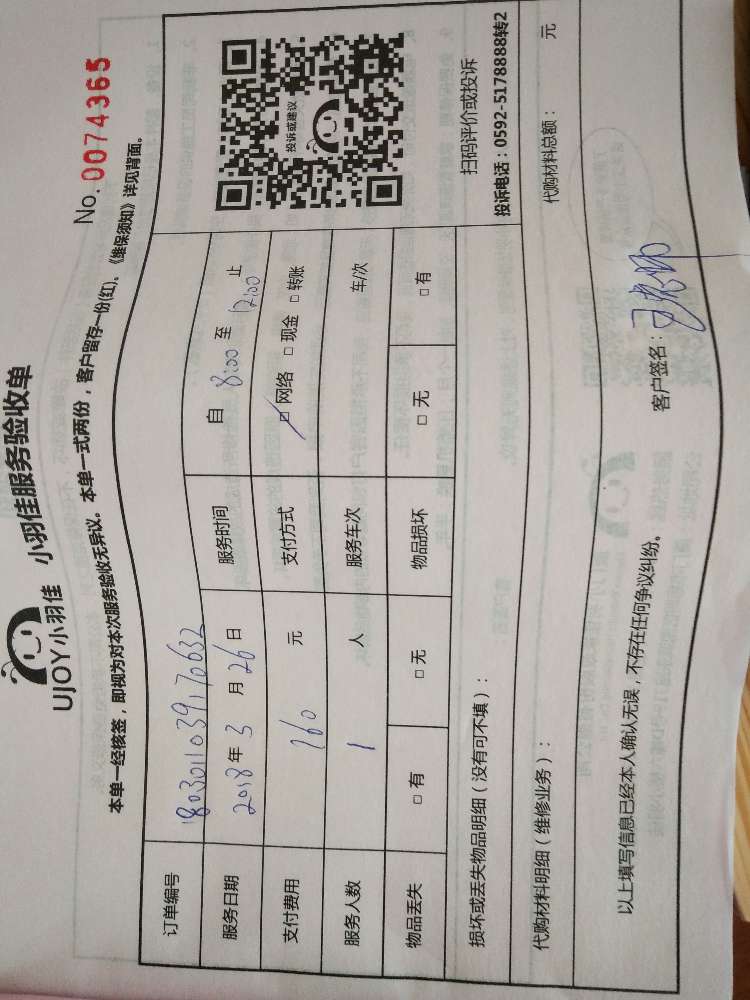 UJOY小羽佳 小羽佳服务验收单
No. 0074365
本单一经核签，即视为对本次服务验收无异议。本单一式两份，客户留存一份(红)。《维保须知》详见背面。
订单编号 1803011039170632
服务日期 2018年 3 月 26 日 服务时间 自 8:00 至 12:00 止
支付费用 160 元 支付方式 □ 网络 □ 现金 □ 转账
服务人数 1 人 服务车次 车/次
物品丢失 □ 有 □ 无 物品损坏 □ 无 □ 有
投诉或建议
扫码评价或投诉
投诉电话：0592-5178888转2
损坏或丢失物品明细（没有可不填）：
代购材料明细（维修业务）： 代购材料总额： 元
以上填写信息已经本人确认无误，不存在任何争议纠纷。
客户签名：